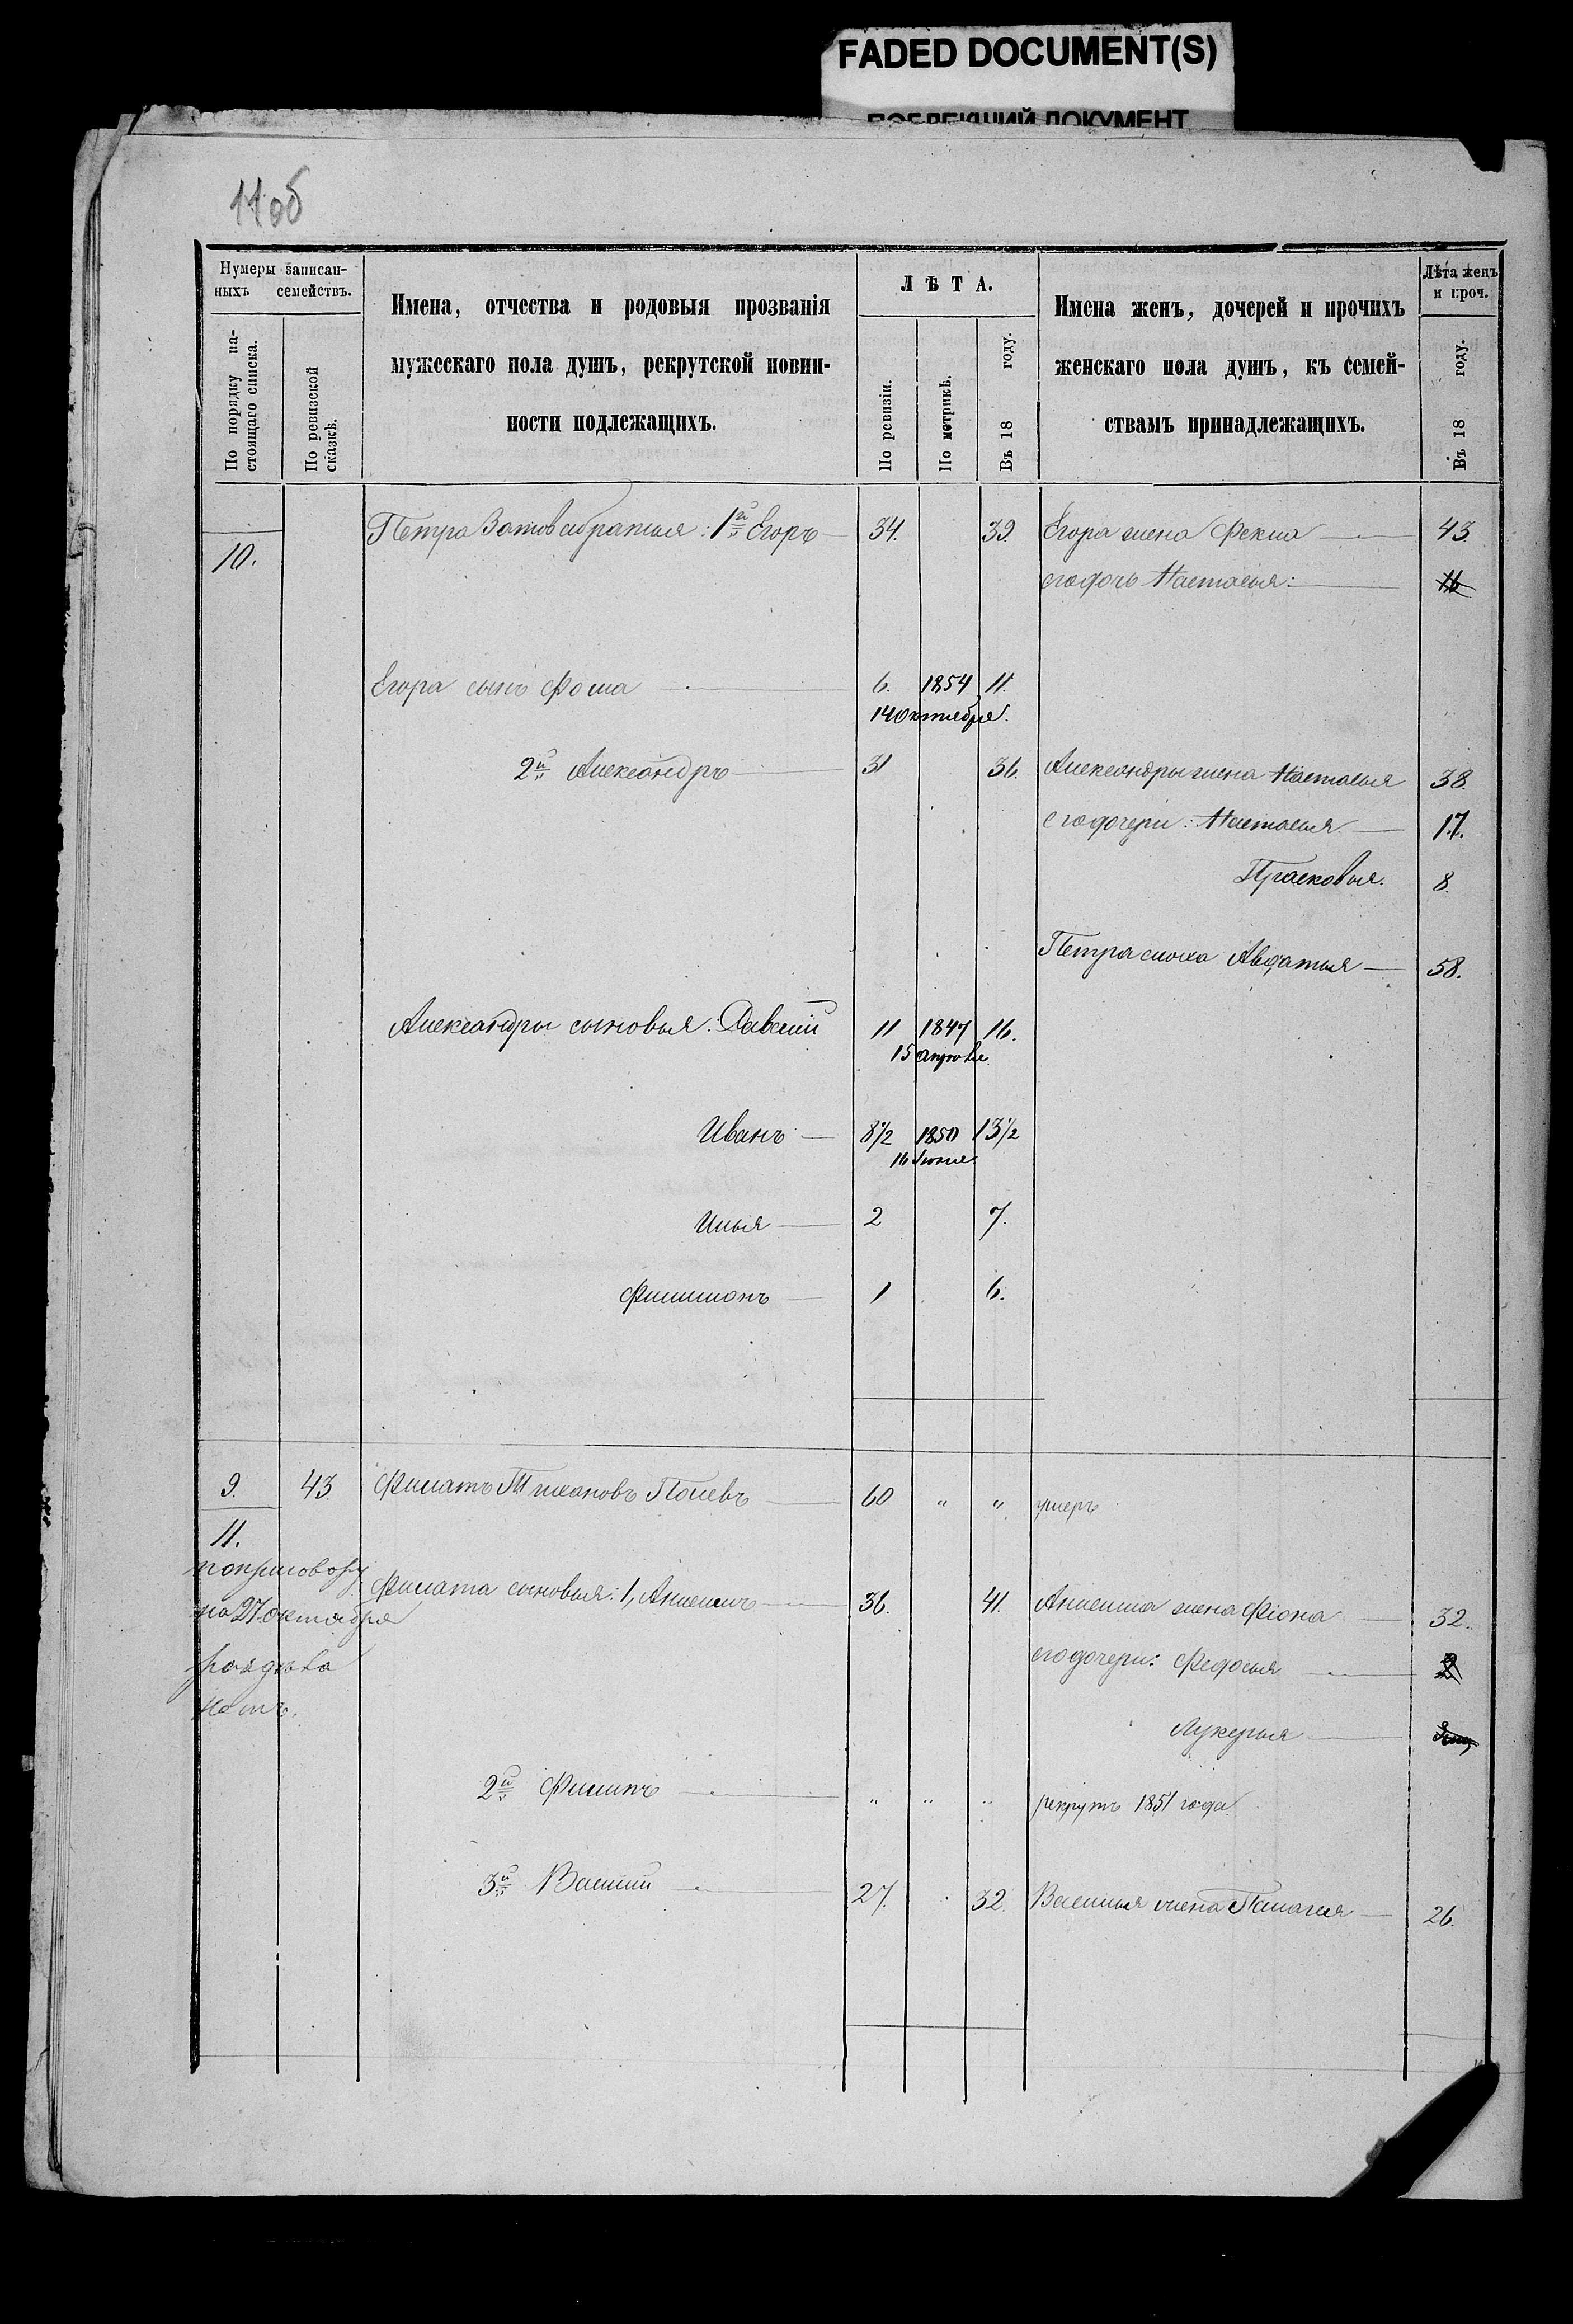 FADED DOCUMENT(S)
11об
Нумеры записан-
ныхъ семействъ.
По порядку на-
стоящаго списка.
По ревизской
сказкѣ.
Имена, отчества и родовыя прозванія
мужескаго пола душъ, рекрутской повин-
ности подлежащихъ.
ЛѢТА.
По ревизіи.
По метрикѣ.
Въ 18 году.
Имена женъ, дочерей и прочихъ
женскаго пола душъ, къ семей-
ствамъ принадлежащихъ.
Лѣта женъ
и проч.
Въ 18 году.
10. Петра Зотова братья: 1й Егоръ 34. 39. Егора жена Фекла 43.
его дочь Настасья: 16
Егора сынъ Фома 6. 1854 11.
14 октября.
2й Александръ 31 36. Александры жена Настасья 38.
его дочери: Настасья 17.
Прасковья. 8.
Петра сноха Авдатья 58.
Александры сыновья: Савелій 11 1847 16.
15 апрѣля
Иванъ 8½ 1850 13½
16 Июня
Илья 2 7.
Филимонъ 1 6.
9. 43. Филатъ Тихановъ Полевъ 60 " " умеръ
11.
по приговору
на 27 октября
раздѣла
нѣтъ.
Филата сыновья: 1, Алексѣй 36. 41. жена Фіона 32.
его дочери: Федосья
Лукерья
2й Филипъ " " " рекрутъ 1851 года
3й Василий 27. 32. Василья жена Палагея 26.